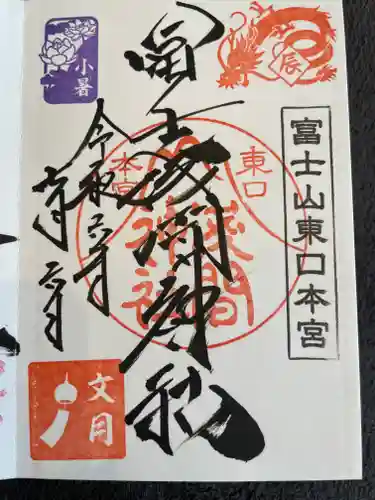 富士山東口本宮
辰
東口
本宮
浅間
神社
冨士浅間神社
小暑
令和六年
文月